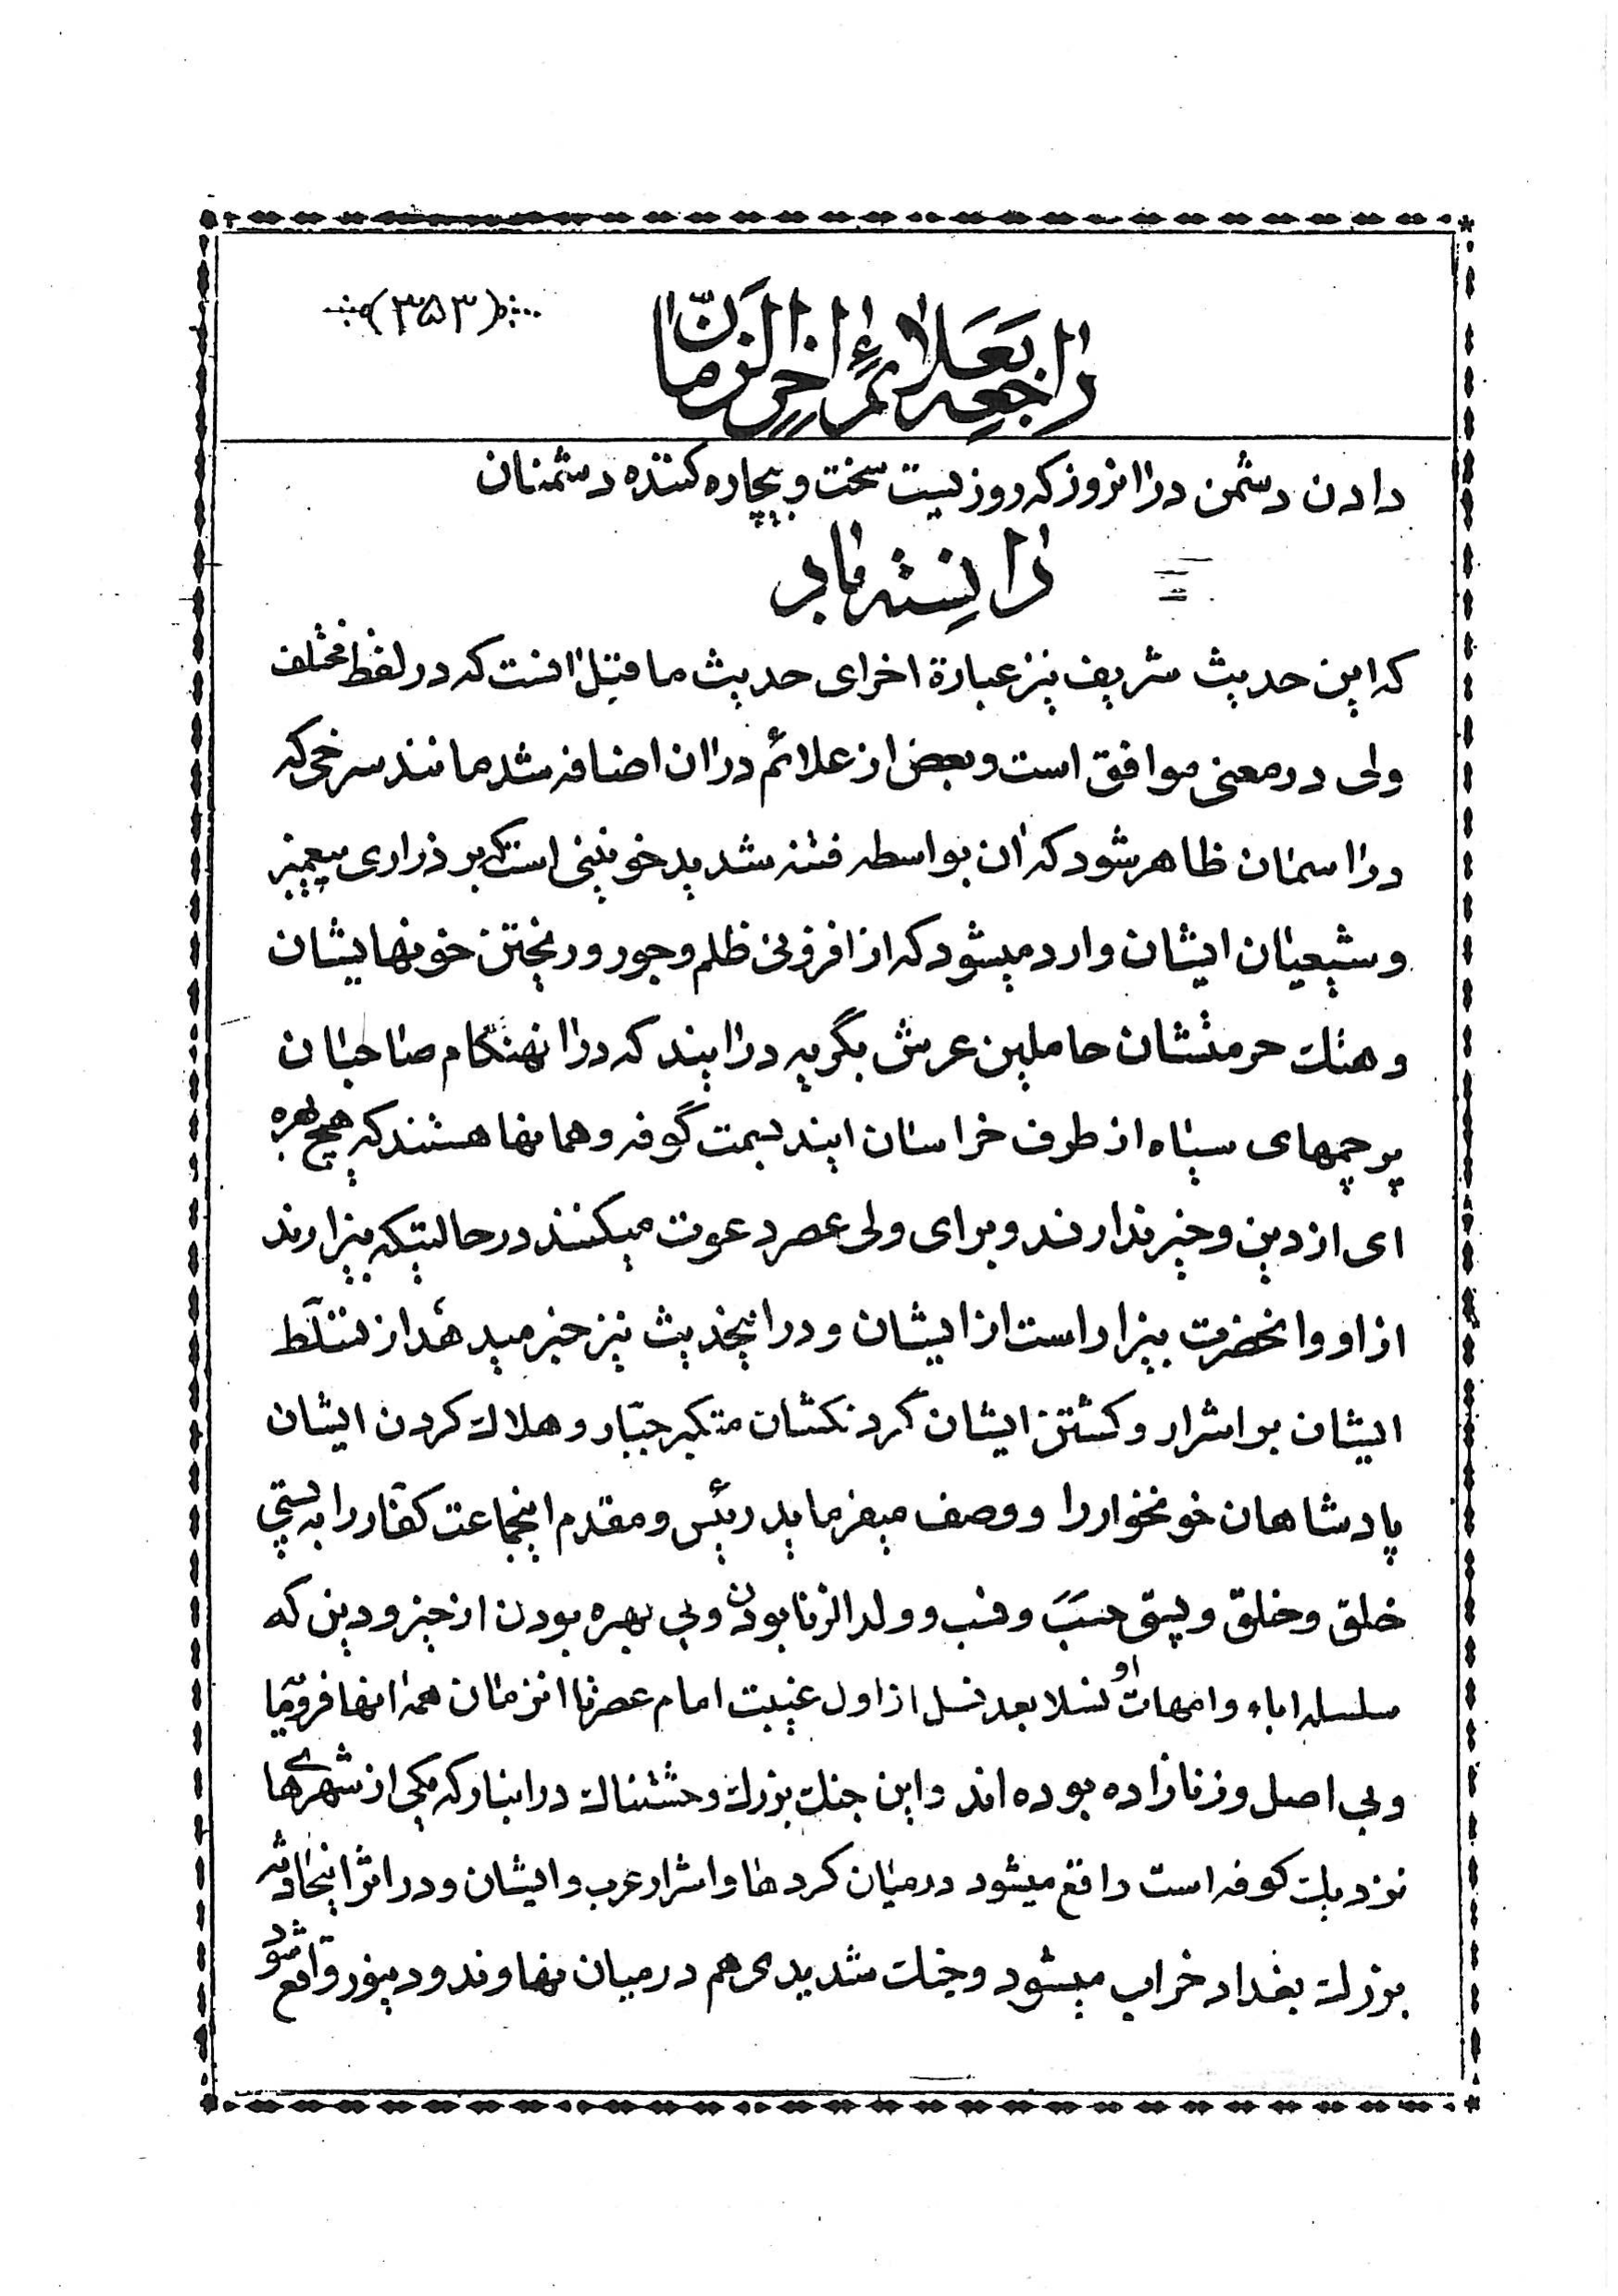 (۳۵۳)
راجعه بعلائم اخر الزمان
دادن دشمن در انروز که روزیست سخت و بیچاره کننده دشمنان
دانسته باد
که این حدیث شریف نیز عبارة اخرای حدیث ما قبل است که در لفظ مختلف
ولی در معنی موافق است و بعض از علائم در ان اضافه شد مانند سرخی که
در اسمان ظاهر شود که ان بواسطه فتنه شدید خونینی است که بر ذراری پیغمبر
و شیعیان ایشان وارد میشود که از افزونی ظلم و جور و ریختن خونهایشان
و هتک حرمتشان حاملین عرش بگریه در ایند که در انهنگام صاحبان
پرچمهای سیاه از طرف خراسان ایند بسمت کوفه و همانها هستند که هیچ بهره
ای از دین و خیر ندارند و برای ولی عصر دعوت میکنند در حالتیکه بیزارند
از او و انحضرت بیزار است از ایشان و در اینحدیث نیز خبر میدهد از تسلّط
ایشان بر اشرار و کشتن ایشان گردنکشان متکبر جبّار و هلاک کردن ایشان
پادشاهان خونخوار را و وصف میفرماید رئیس و مقدم اینجماعت کفّار را به پستی
خلق و خلق و پستی حسب و نسب و ولد الزنا بودن و بی بهره بودن از خیر و دین که
سلسله اباء و امهات او نسلا بعد نسل از اول غیبت امام عصر تا انزمان همه انها فرومایه
و بی اصل و زنازاده بوده اند و این جنک بزرک وحشتناک در انبار که یکی از شهرهای
نزدیک کوفه است واقع میشود در میان کردها و اشرار عرب و ایشان و در اثر اینحادثه
بزرک بغداد خراب میشود و جنک شدیدی هم در میان نهاوند و دینور واقع شود